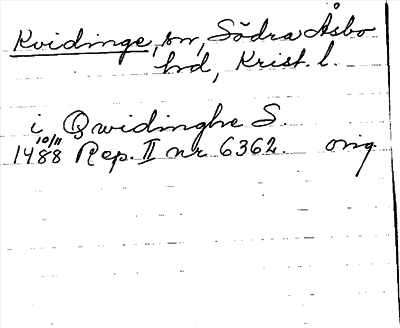 Kvidinge, sn, Södra Åsbo
hd, Krist. l.
i Qwidinghe S.
10/11
1488 Rep. II nr 6362. orig